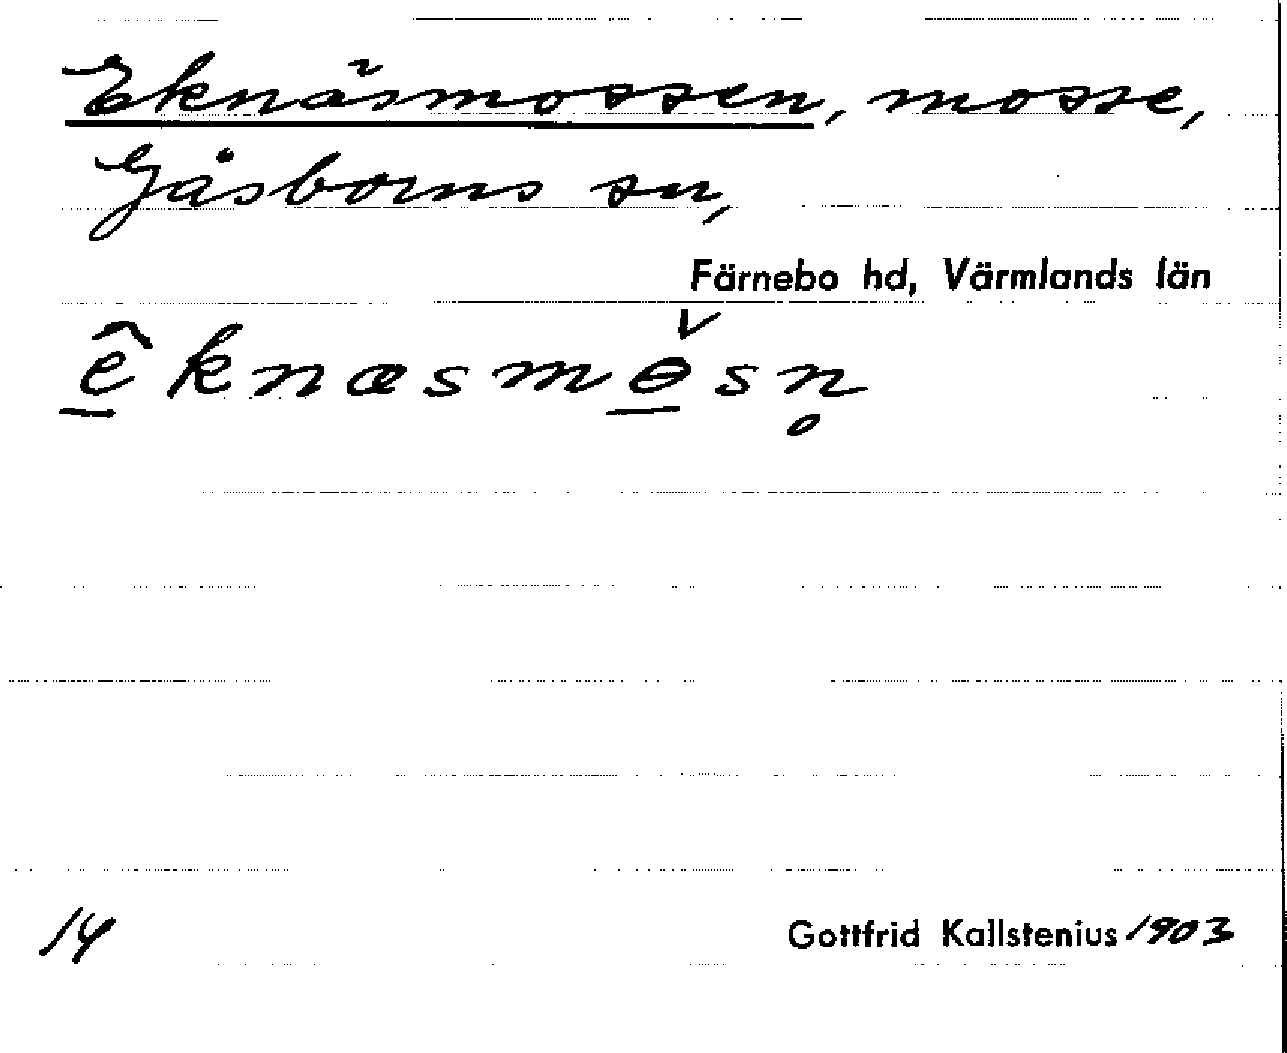 Eknäsmossen, mosse,
Gåsborns sn,
Färnebo hd, Värmlands län
ê̱knæsmɵ̱̌sn̥
14
Gottfrid Kallstenius 1903